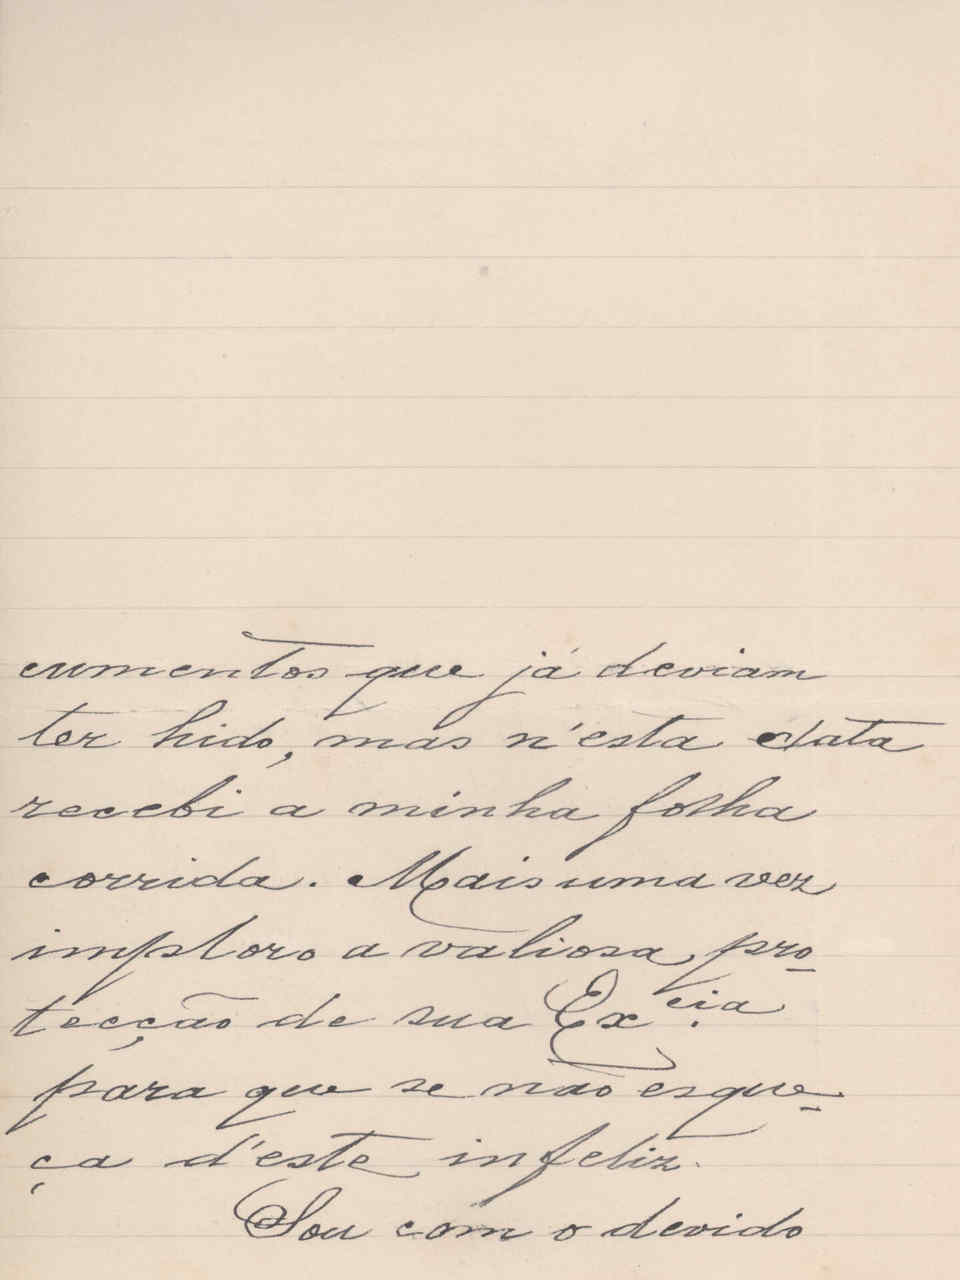 cumentos que já deviam
ter hido, mas n'esta data
recebi a minha folha
corrida. Mais uma vez
imploro a valiosa pro-
tecção de sua Ex.cia
para que se não esque-
ça d'este infeliz.
Sou com o devido